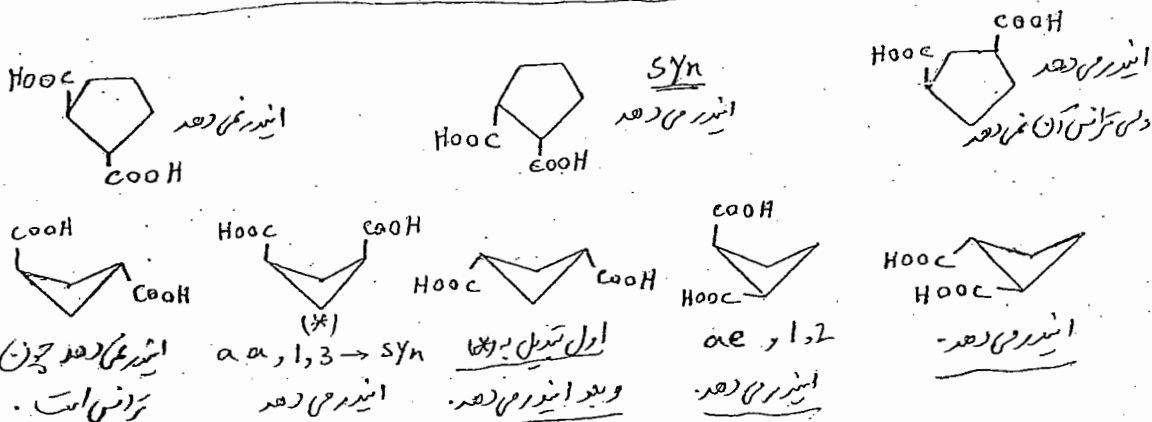 HOOC
COOH
انیدر نمی دهد
HOOC
COOH
syn
انیدر می دهد
HOOC
COOH
انیدر می دهد
ولی ترانس آن نمی دهد
COOH
COOH
انیدر نمی دهد چون
ترانس است .
HOOC
COOH
(*)
a a , 1, 3 → syn
انیدر می دهد
HOOC
COOH
اول تبدیل به (*)
و بعد انیدر می دهد.
COOH
HOOC
ae , 1,2
انیدر می دهد.
HOOC
HOOC
انیدر می دهد.